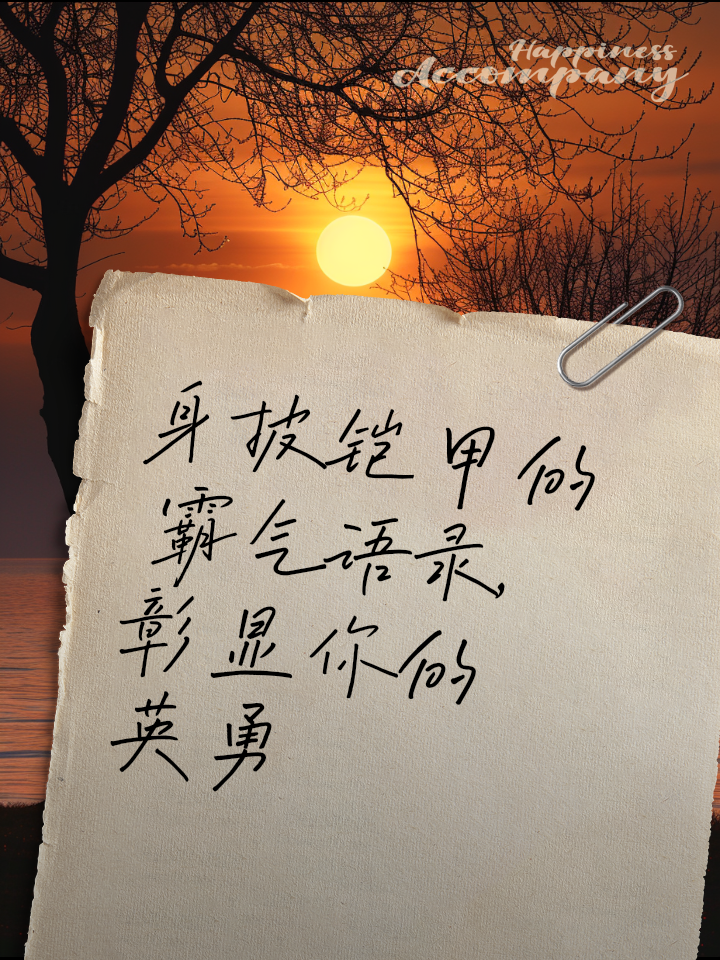 Happiness
Accompany
身披铠甲的
霸气语录,
彰显你的
英勇